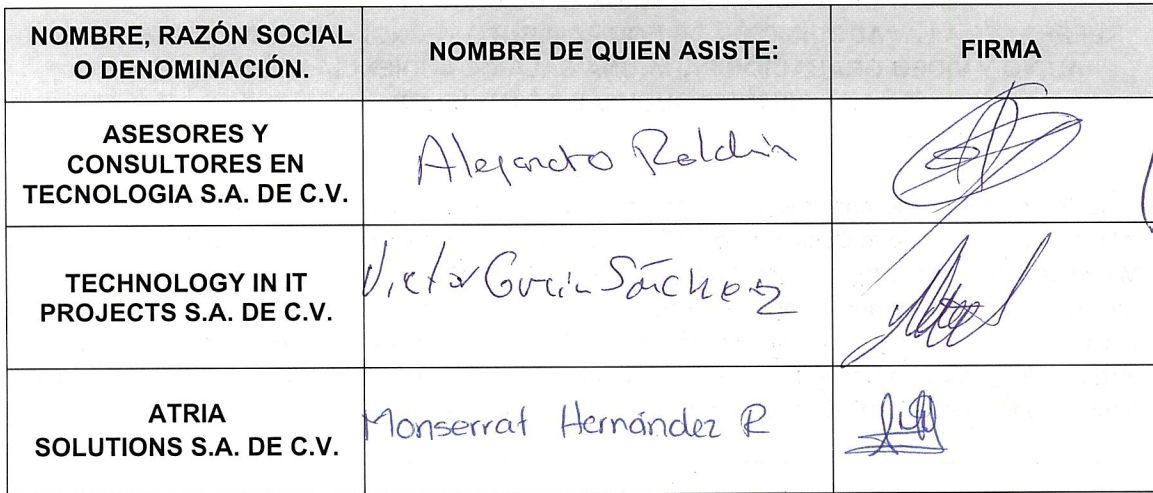 NOMBRE, RAZÓN SOCIAL
O DENOMINACIÓN.
NOMBRE DE QUIEN ASISTE:
FIRMA
ASESORES Y
CONSULTORES EN
TECNOLOGIA S.A. DE C.V.
Alejandro Roldán
TECHNOLOGY IN IT
PROJECTS S.A. DE C.V.
Victor Garcia Sánchez
ATRIA
SOLUTIONS S.A. DE C.V.
Monserrat Hernández R